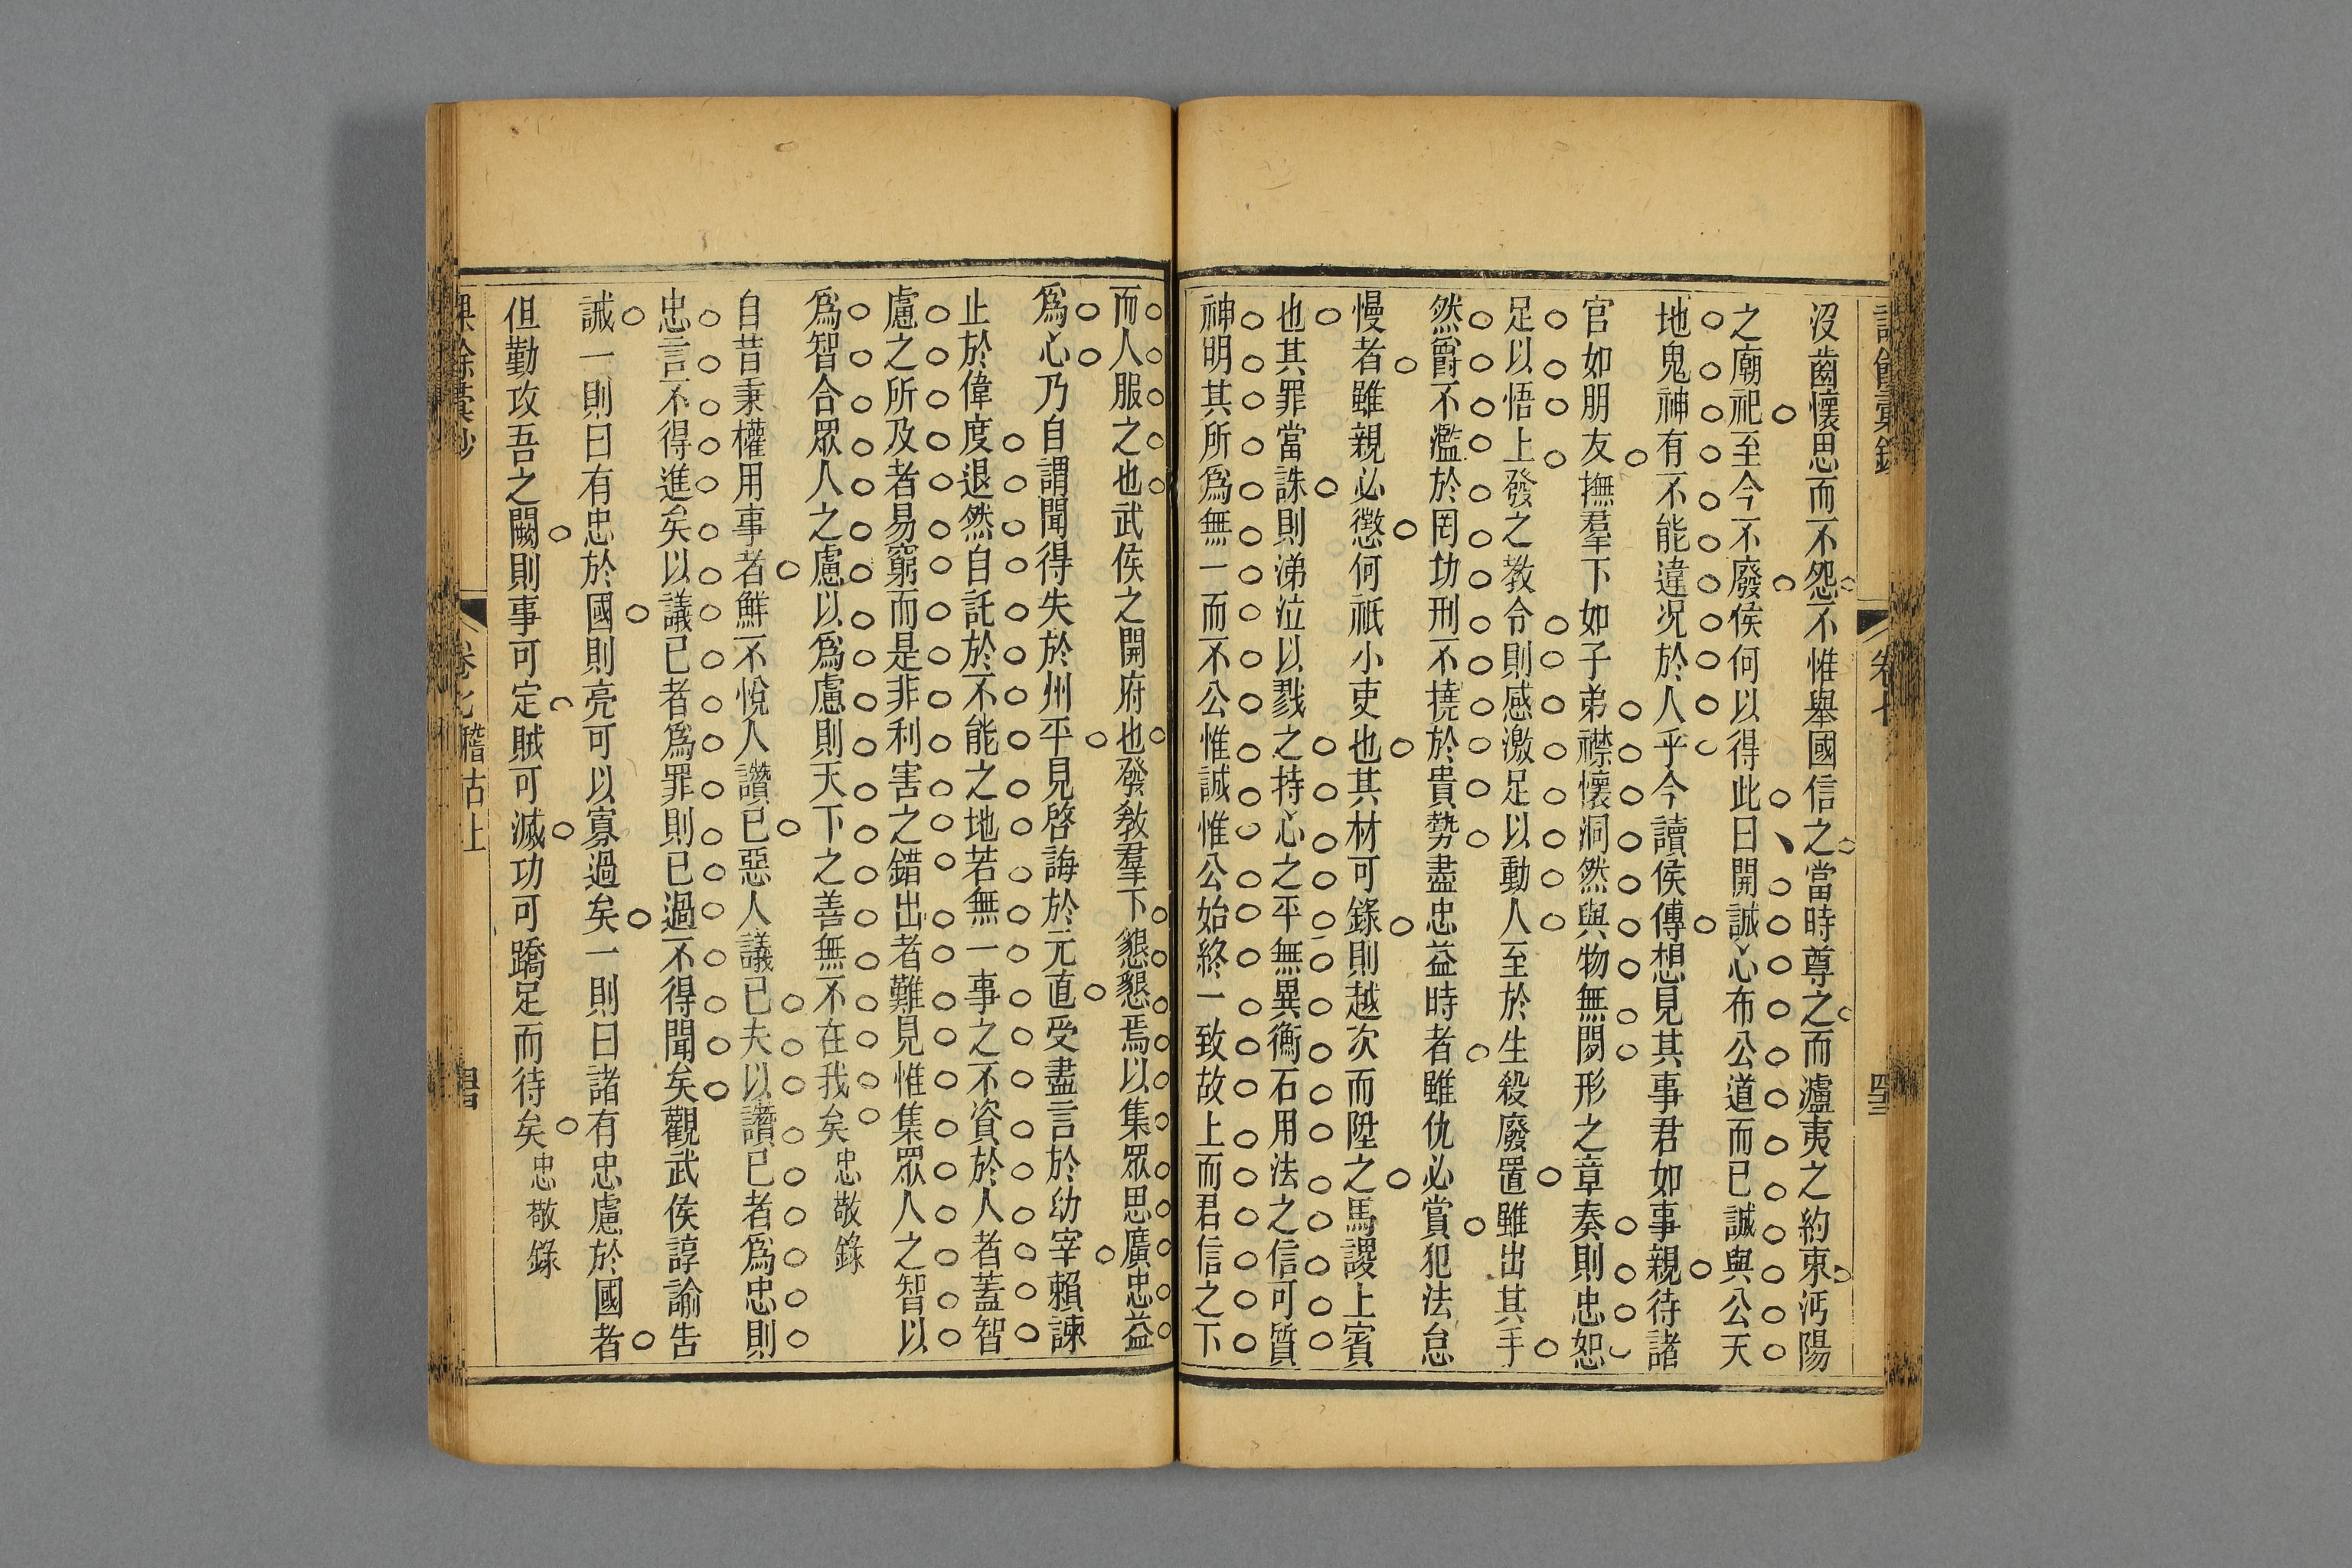 沒齒懷思而不怨不惟舉國信之當時尊之而瀘夷之約束沔陽
之廟祀至今不廢侯何以得此曰開誠心布公道而已誠與公天
地鬼神有不能違况於人乎今讀侯傳想見其事君如事親待諸
官如朋友撫羣下如子弟襟懷洞然與物無閡形之章奏則忠恕
足以悟上發之教令則感激足以動人至於生殺廢置雖出其手
然爵不濫於罔功刑不撓於貴勢盡忠益時者雖仇必賞犯法怠
慢者雖親必懲何祇小吏也其材可錄則越次而陞之馬謖上賓
也其罪當誅則涕泣以戮之持心之平無異衡石用法之信可質
神明其所爲無一而不公惟誠惟公始終一致故上而君信之下
而人服之也武侯之開府也發教羣下懇懇焉以集眾思廣忠益
爲心乃自謂聞得失於州平見啓誨於元直受盡言於幼宰賴諫
止於偉度退然自託於不能之地若無一事之不資於人者蓋智
慮之所及者易窮而是非利害之錯出者難見惟集眾人之智以
爲智合眾人之慮以爲慮則天下之善無不在我矣忠敬錄
自昔秉權用事者鮮不悅人讚已惡人議已夫以讚已者爲忠則
忠言不得進矣以議已者爲罪則已過不得聞矣觀武侯諄諭告
誡一則曰有忠於國則亮可以寡過矣一則曰諸有忠慮於國者
但勤攻吾之闕則事可定賊可滅功可蹻足而待矣忠敬錄
卷七 稽古上